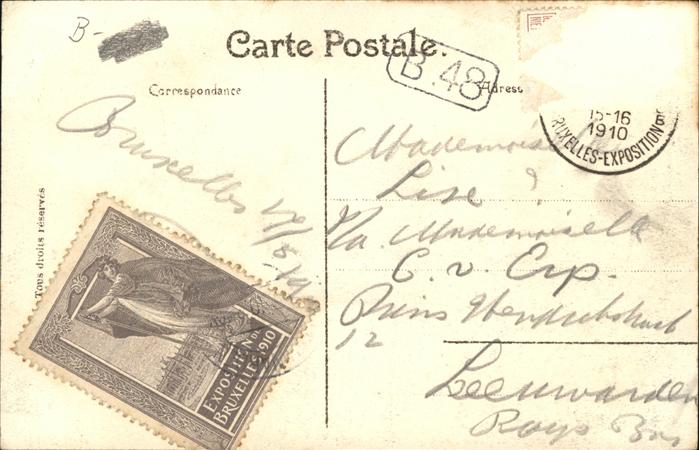 B-
Carte Postale.
B.48
Correspondance
Adresse
15-16
1910
BRUXELLES-EXPOSITION
Bruxelles
Tous droits réservés
Mademoiselle
Lise
p/a. Mademoiselle
C. v. Erp.
Prins Hendrikstraat
12
Leeuwarden
Pays Bas
EXPOSITION DE
BRUXELLES 1910